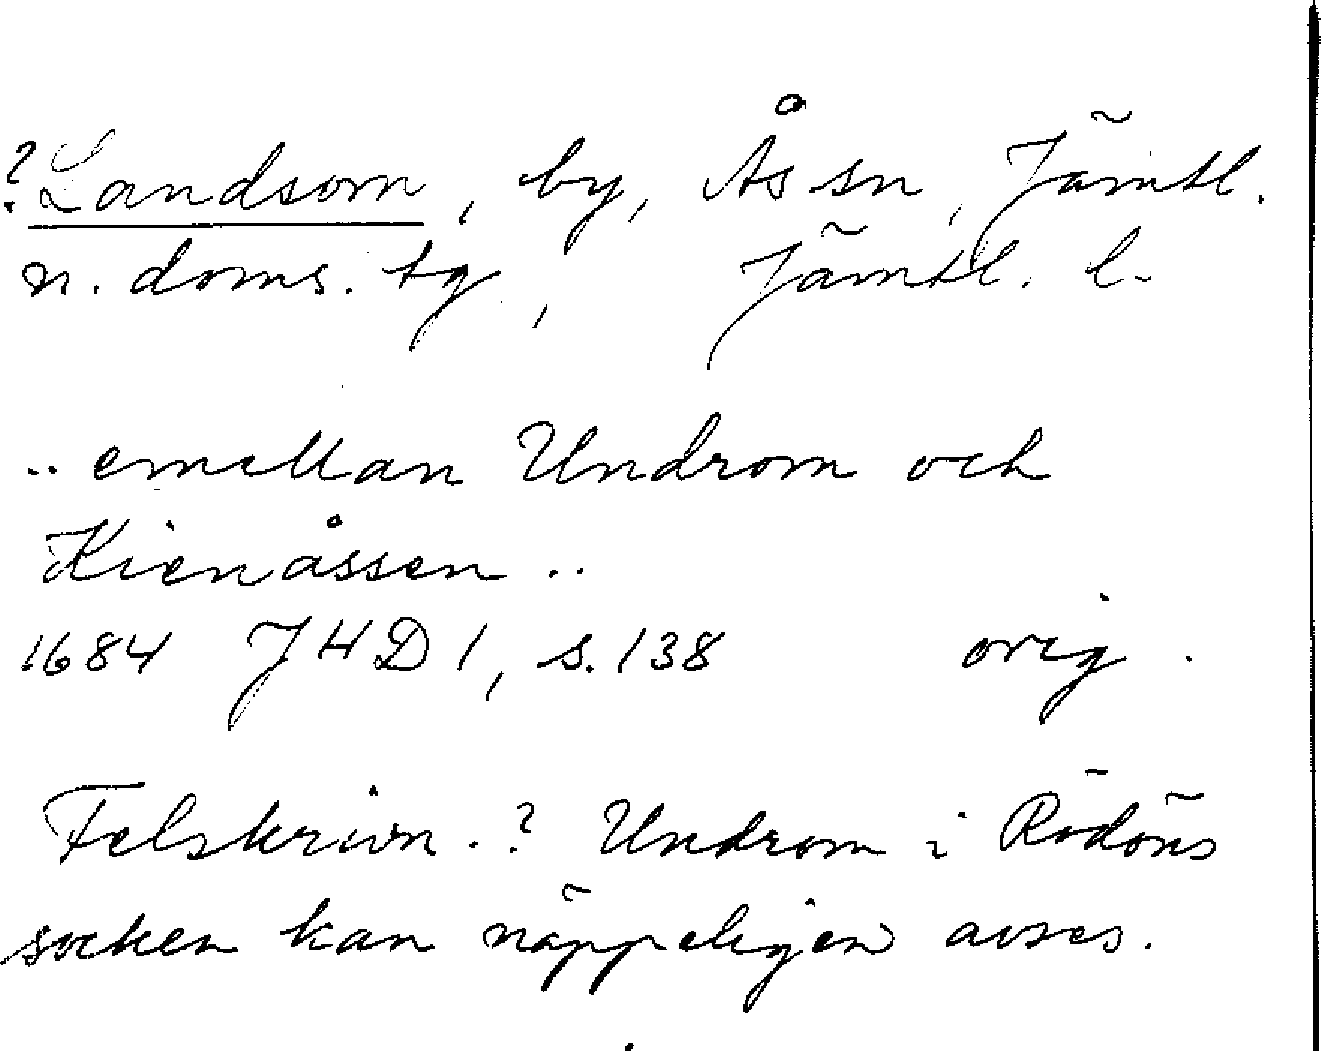 ?Landsom, by, Ås sn, Jämtl.
n. doms. tg, Jämtl. l.
.. emellan Undrom och
Kienåssen ..
1684 JHD 1, s. 138 orig.
Felskrivn.? Undrom i Rödöns
socken kan näppeligen avses.